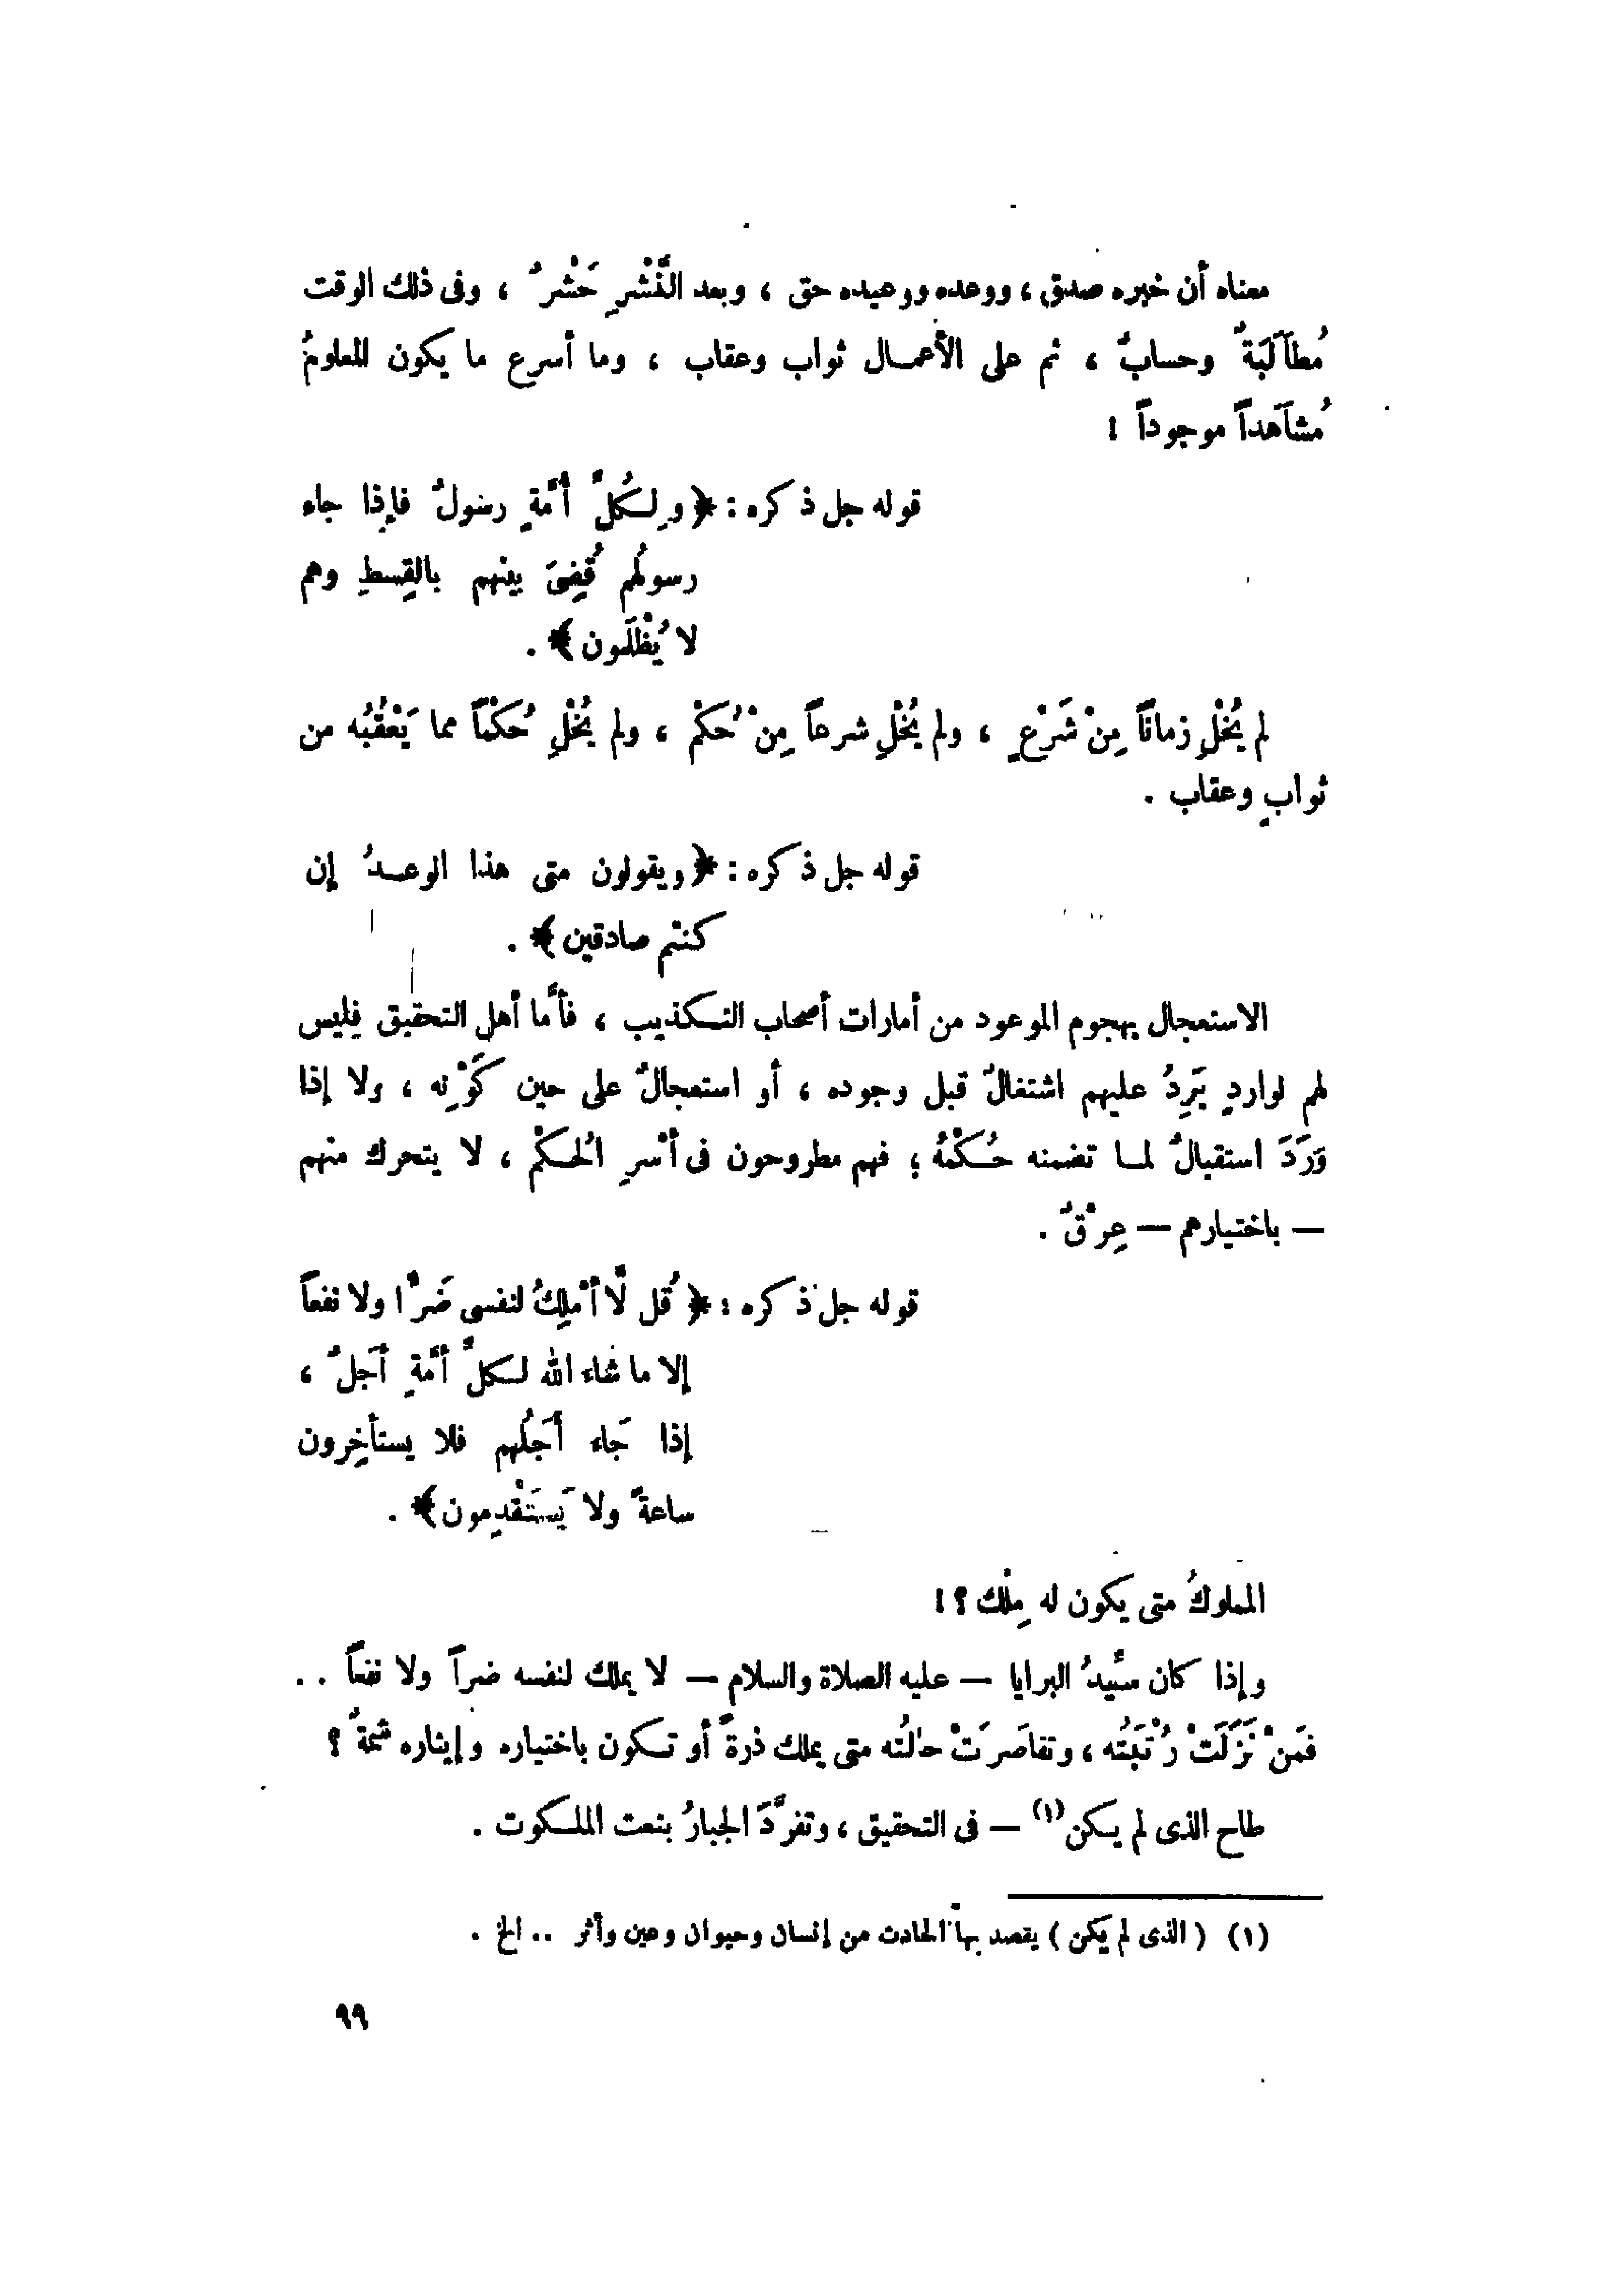 معناه أن خبره صدق ، ووعده ووعيده حق ، وبعد النَّشْرِ حَشْرٌ ، وفى ذلك الوقت
مُطَالَبَةٌ وحسابٌ ، ثم على الأعمـال ثواب وعقاب ، وما أسرع ما يكون المعلومُ
مُشَاهَداً موجوداً !
قوله جل ذكره : ﴿ ولِكُلِّ أُمَّةٍ رسولٌ فإِذا جاء
رسولُهم قُضِىَ بينهم بالقِسطِ وهم
لا يُظْلَمون ﴾ .
لم يُخْلِ زماناً مِنْ شَرْعٍ ، ولم يُخْلِ شرعاً مِنْ حُكْمٍ ، ولم يُخْلِ حُكْماً مما يَعْقُبُه من
ثوابٍ وعقاب .
قوله جل ذكره : ﴿ ويقولون متى هذا الوعـدُ إن
كنتم صادقين ﴾ .
الاستعجال بهجوم الموعود من أمارات أصحاب التكذيب ، فأمَّا أهل التحقيق فليس
لهم لواردٍ يَرِدُ عليهم اشتغالٌ قبل وجوده ، أو استعجالٌ على حين كَوْنِه ، ولا إذا
وَرَدَ استقبالٌ لمـا تضمنه حُكْمُهُ ؛ فهم مطروحون فى أسْرِ الحُكْم ، لا يتحرك منهم
— باختيارهم — عِرْقٌ .
قوله جل ذكره : ﴿ قُل لَّا أَمْلِكُ لنفسى ضَرًّا ولا نفعاً
إلا ما شاء الله لكلِّ أُمَّةٍ أَجَلٌ ،
إذا جَاء أَجَلُهم فلا يستأخِرون
ساعةً ولا يَسْتَقْدِمون ﴾ .
المملوكُ متى يكون له مِلْك ؟ !
وإذا كان سيِّدُ البرايا — عليه الصلاة والسلام — لا يملك لنفسه ضراً ولا نفعاً . .
فمَنْ نَزَلَتْ رُتْبَتُه ، وتقاصَرَتْ حالتُه متى يملك ذرةً أو تكون باختياره وإيثاره شمةٌ ؟
طاح الذى لم يكن(١) — فى التحقيق ، وتفرَّدَ الجبارُ بنعت الملكوت .
(١) ( الذى لم يكن ) يقصد بها الحادث من إنسان وحيوان وعين وأثر .. الخ .
٩٩